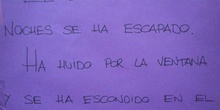 NOCHES SE HA ESCAPADO.
HA HUIDO POR LA VENTANA
Y SE HA ESCONDIDO EN EL